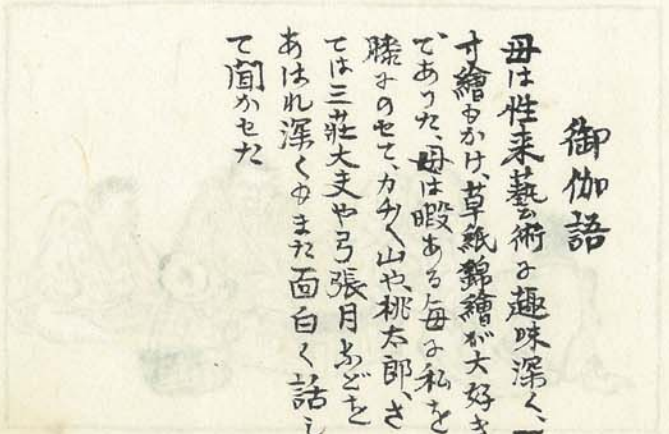 御伽語
母は性来藝術に趣味深く、
寸繪もかけ、草紙錦繪が大好き
であつた、母は暇ある毎に私を
膝にのせて、カチ〱山や、桃太郎、さ
ては三荘大夫や弓張月などを
あはれ深くゆまた面白く話し
て聞かせた